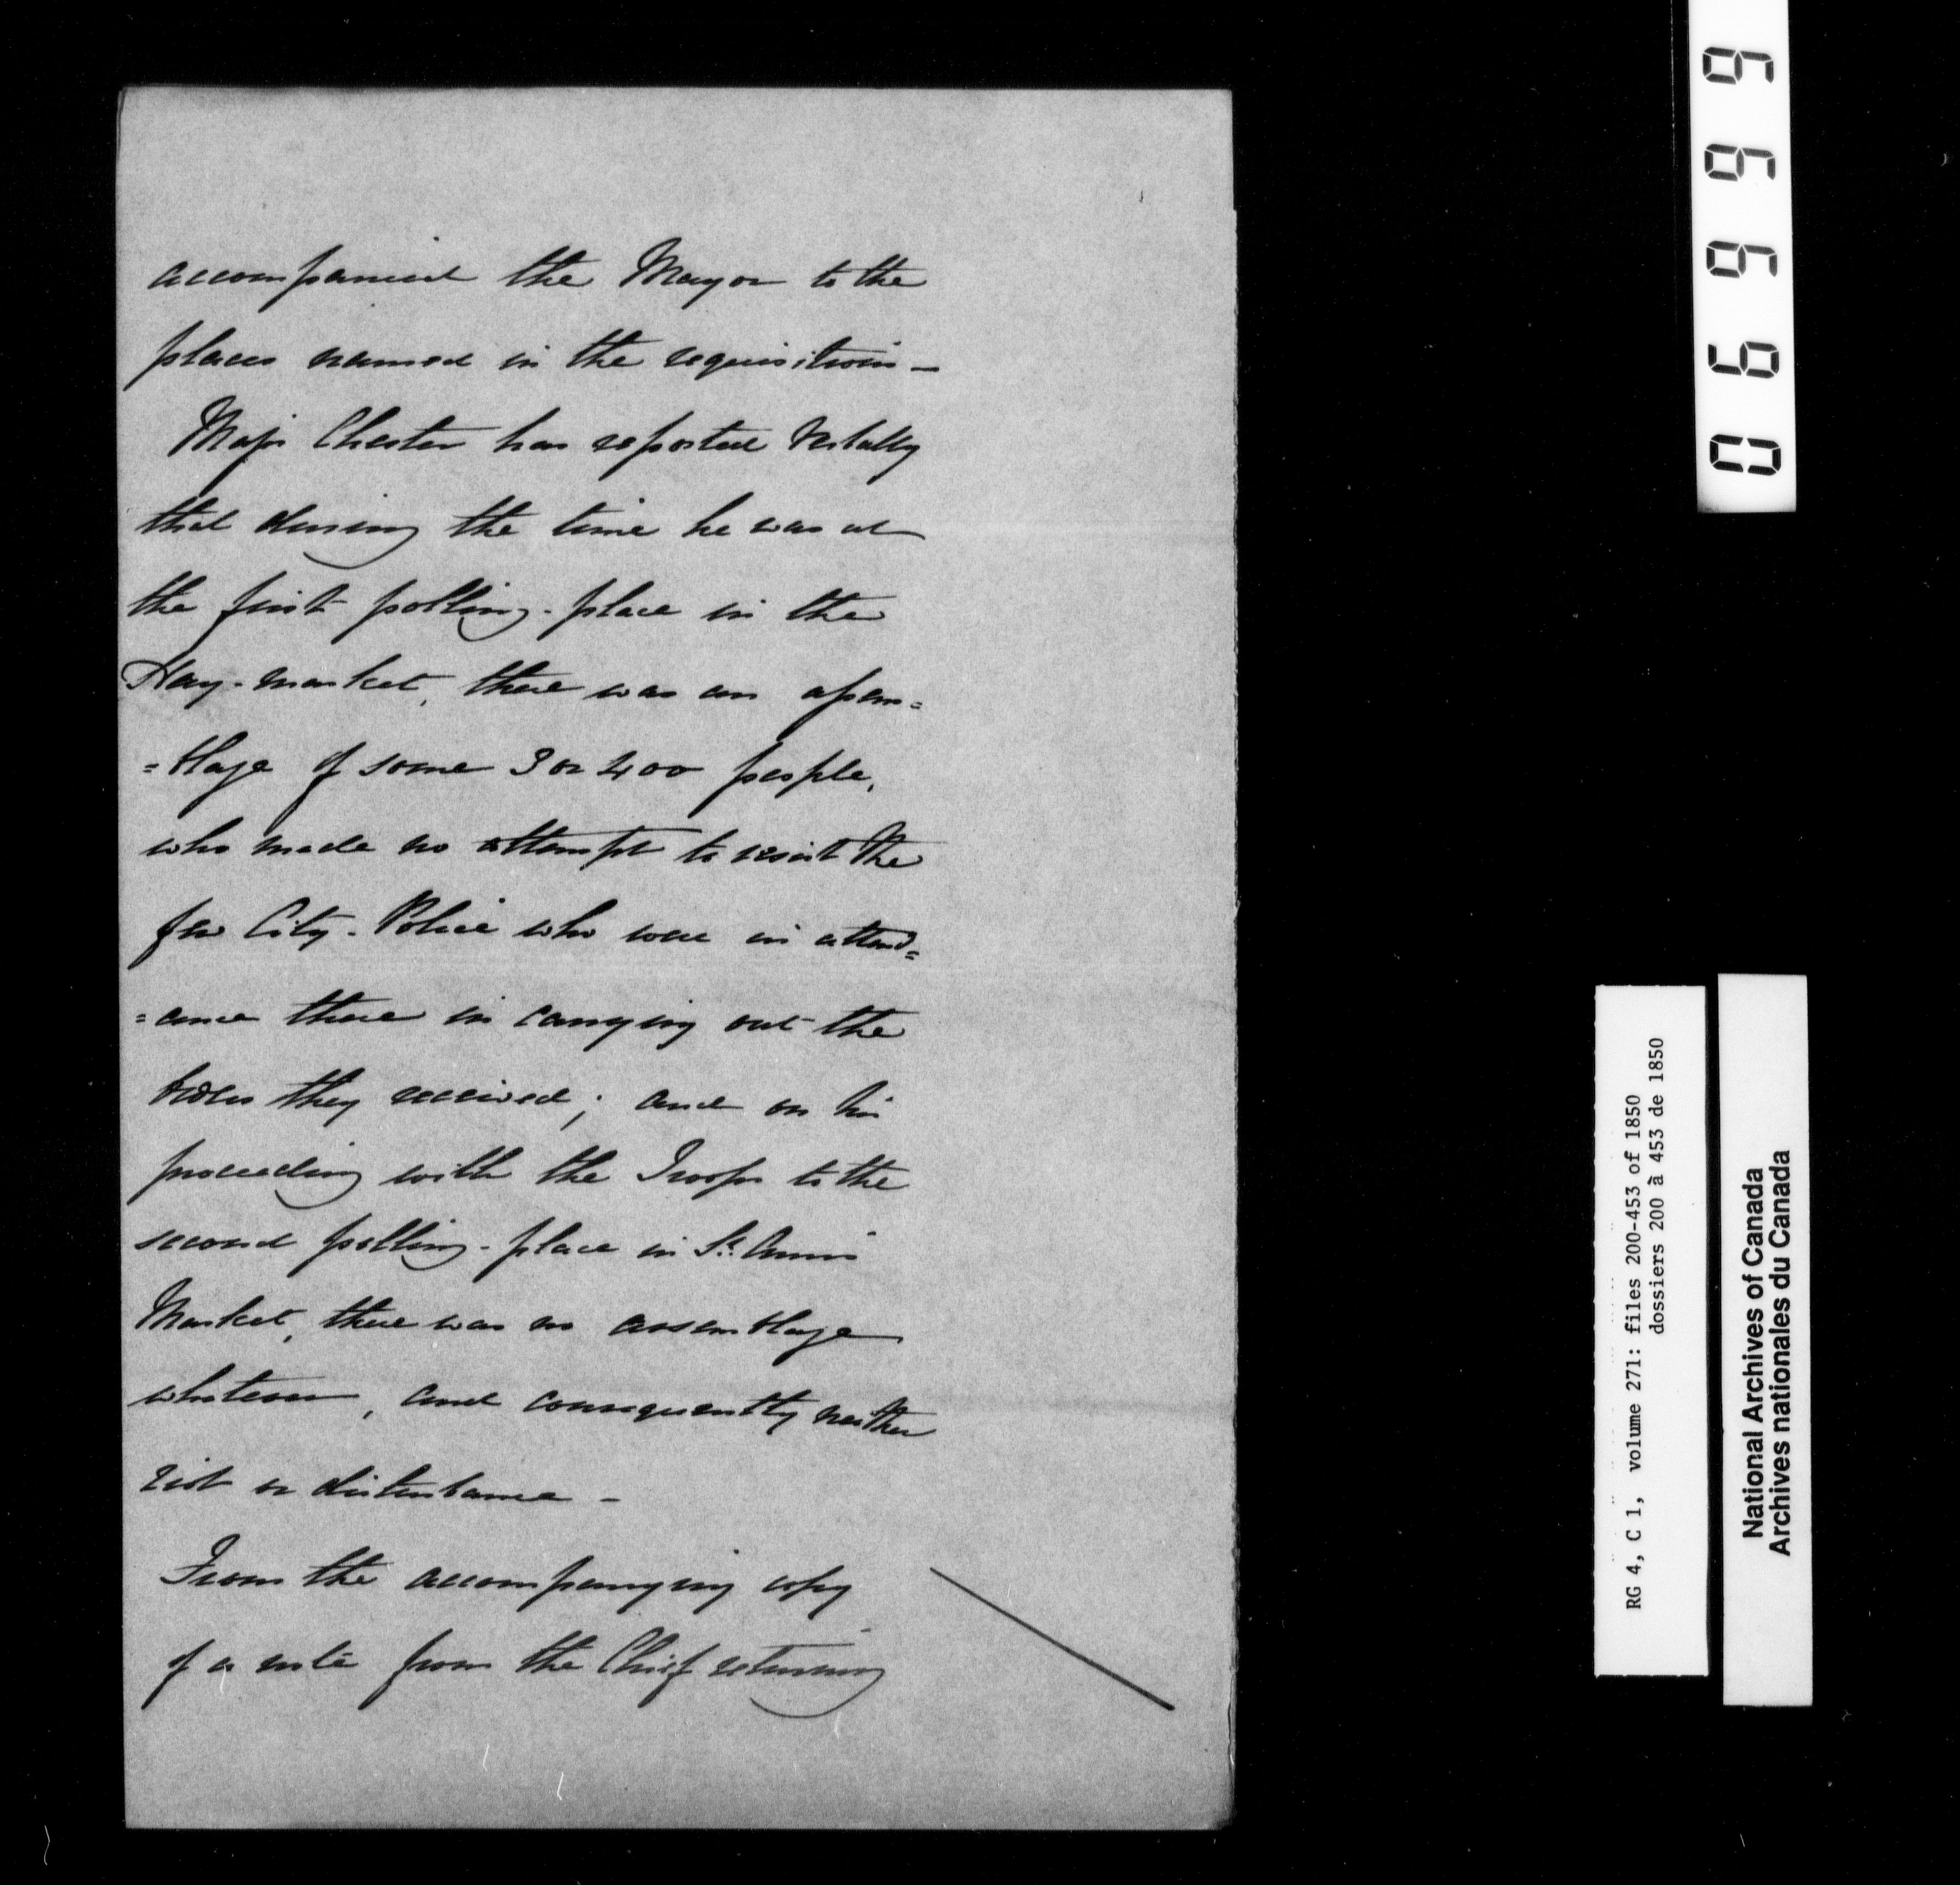 accompanied the Mayor to the
places named in the requisition –
Major Chester has reported verbally
that during the time he was at
the first polling-place in the
Hay-market, there was an assem=
=blage of some 3 or 400 people,
who made no attempt to resist the
few City-Police who were in attend=
=ance there in carrying out the
orders they received; and on his
proceeding with the Troops to the
second polling-place in St. Ann's
Market, there was no assemblage
whatever, and consequently neither
riot or disturbance –
From the accompanying copy
of a note from the Chief returning
06999
RG 4, C 1, volume 271: files 200-453 of 1850
dossiers 200 à 453 de 1850
National Archives of Canada
Archives nationales du Canada